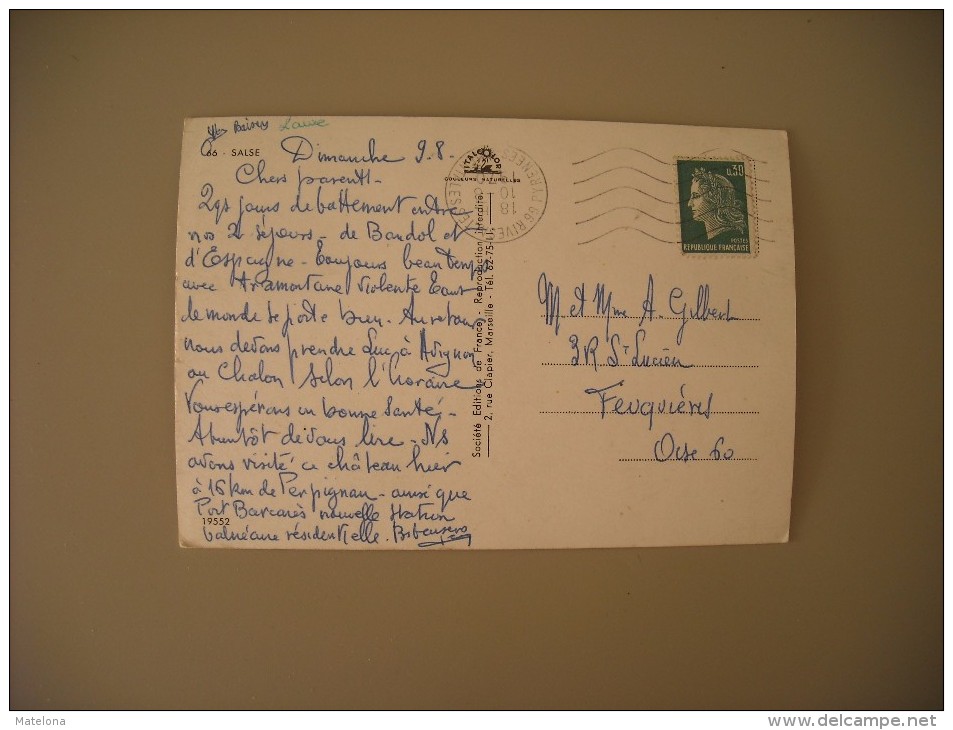 Baisers Laure
66 - SALSE
Dimanche 9.8.
Chers parents -
2qs jours de battement entre
nos 2 séjours - de Bandol et
d'Espagne - Toujours beau temps
avec tramontane violente tout
le monde se porte bien. Au retour
nous devons prendre Luc à Avignon
ou Chalon selon l'horaire
Vous espérons en bonne santé -
A bientôt de vous lire - Ns
avons visité ce château hier
à 16 km de Perpignan - ainsi que
Port Barcarès nouvelle station
balnéaire résidentielle. Bs baisers
19552
ITALCOLOR
COULEURS NATURELLES
Société Editions de France - Reproduction interdite
2, rue Clapier, Marseille - Tél. 62-75-11
66 RIVESALTES
PYRENEES
18
10
0,30
POSTES
REPUBLIQUE FRANÇAISE
M et Mme A. Gilbert
3 R St Lucien
Feuquières
Oise 60
Matelona
delcampe.net